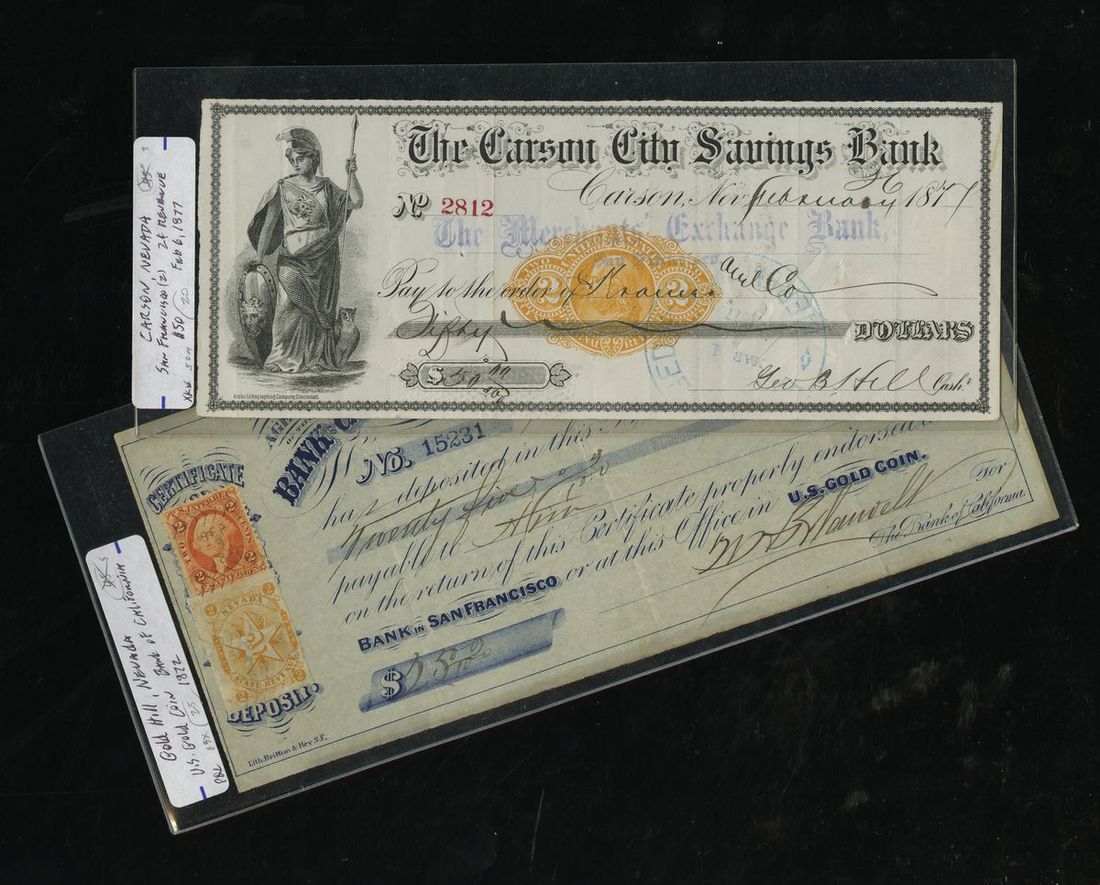 The Carson City Savings Bank
Carson, Nev. February 6 1877
No 2812
The Merchants' Exchange Bank,
Pay to the order of Kramer and Co
Fifty DOLLARS
$ 50 00/100
Geo B Hill Cash.r
Globe Lithographing Company, Cincinnati.
CARSON, NEVADA
SAN FRANCISCO (2) 2¢ REVENUE
$50 / 20 Feb 6, 1877
BANK
No. 15231
CERTIFICATE
has deposited in this
Twenty five
payable to
on the return of this Certificate properly endorsed
BANK IN SAN FRANCISCO or at this Office in U.S. GOLD COIN.
For
The Bank of California.
$
U.S. INTER. REV.
2 2
NEVADA
2 2
STATE REVENUE
DEPOSIT
Lith. Britton & Rey. S.F.
Gold Hill, NEVADA
U.S. Gold Coin BANK OF CALIFORNIA
25 1872